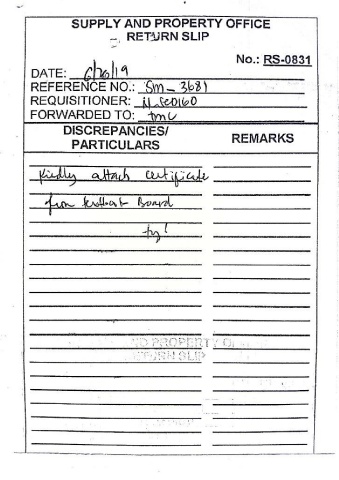 SUPPLY AND PROPERTY OFFICE
RETURN SLIP
No.: RS-0831
DATE: 6/26/19
REFERENCE NO.: SM-3681
REQUISITIONER:
FORWARDED TO: TMC
DISCREPANCIES/
PARTICULARS
REMARKS
Kindly attach certificate
from Board
ty!
ND PROPERTY OF
RETURN SLIP